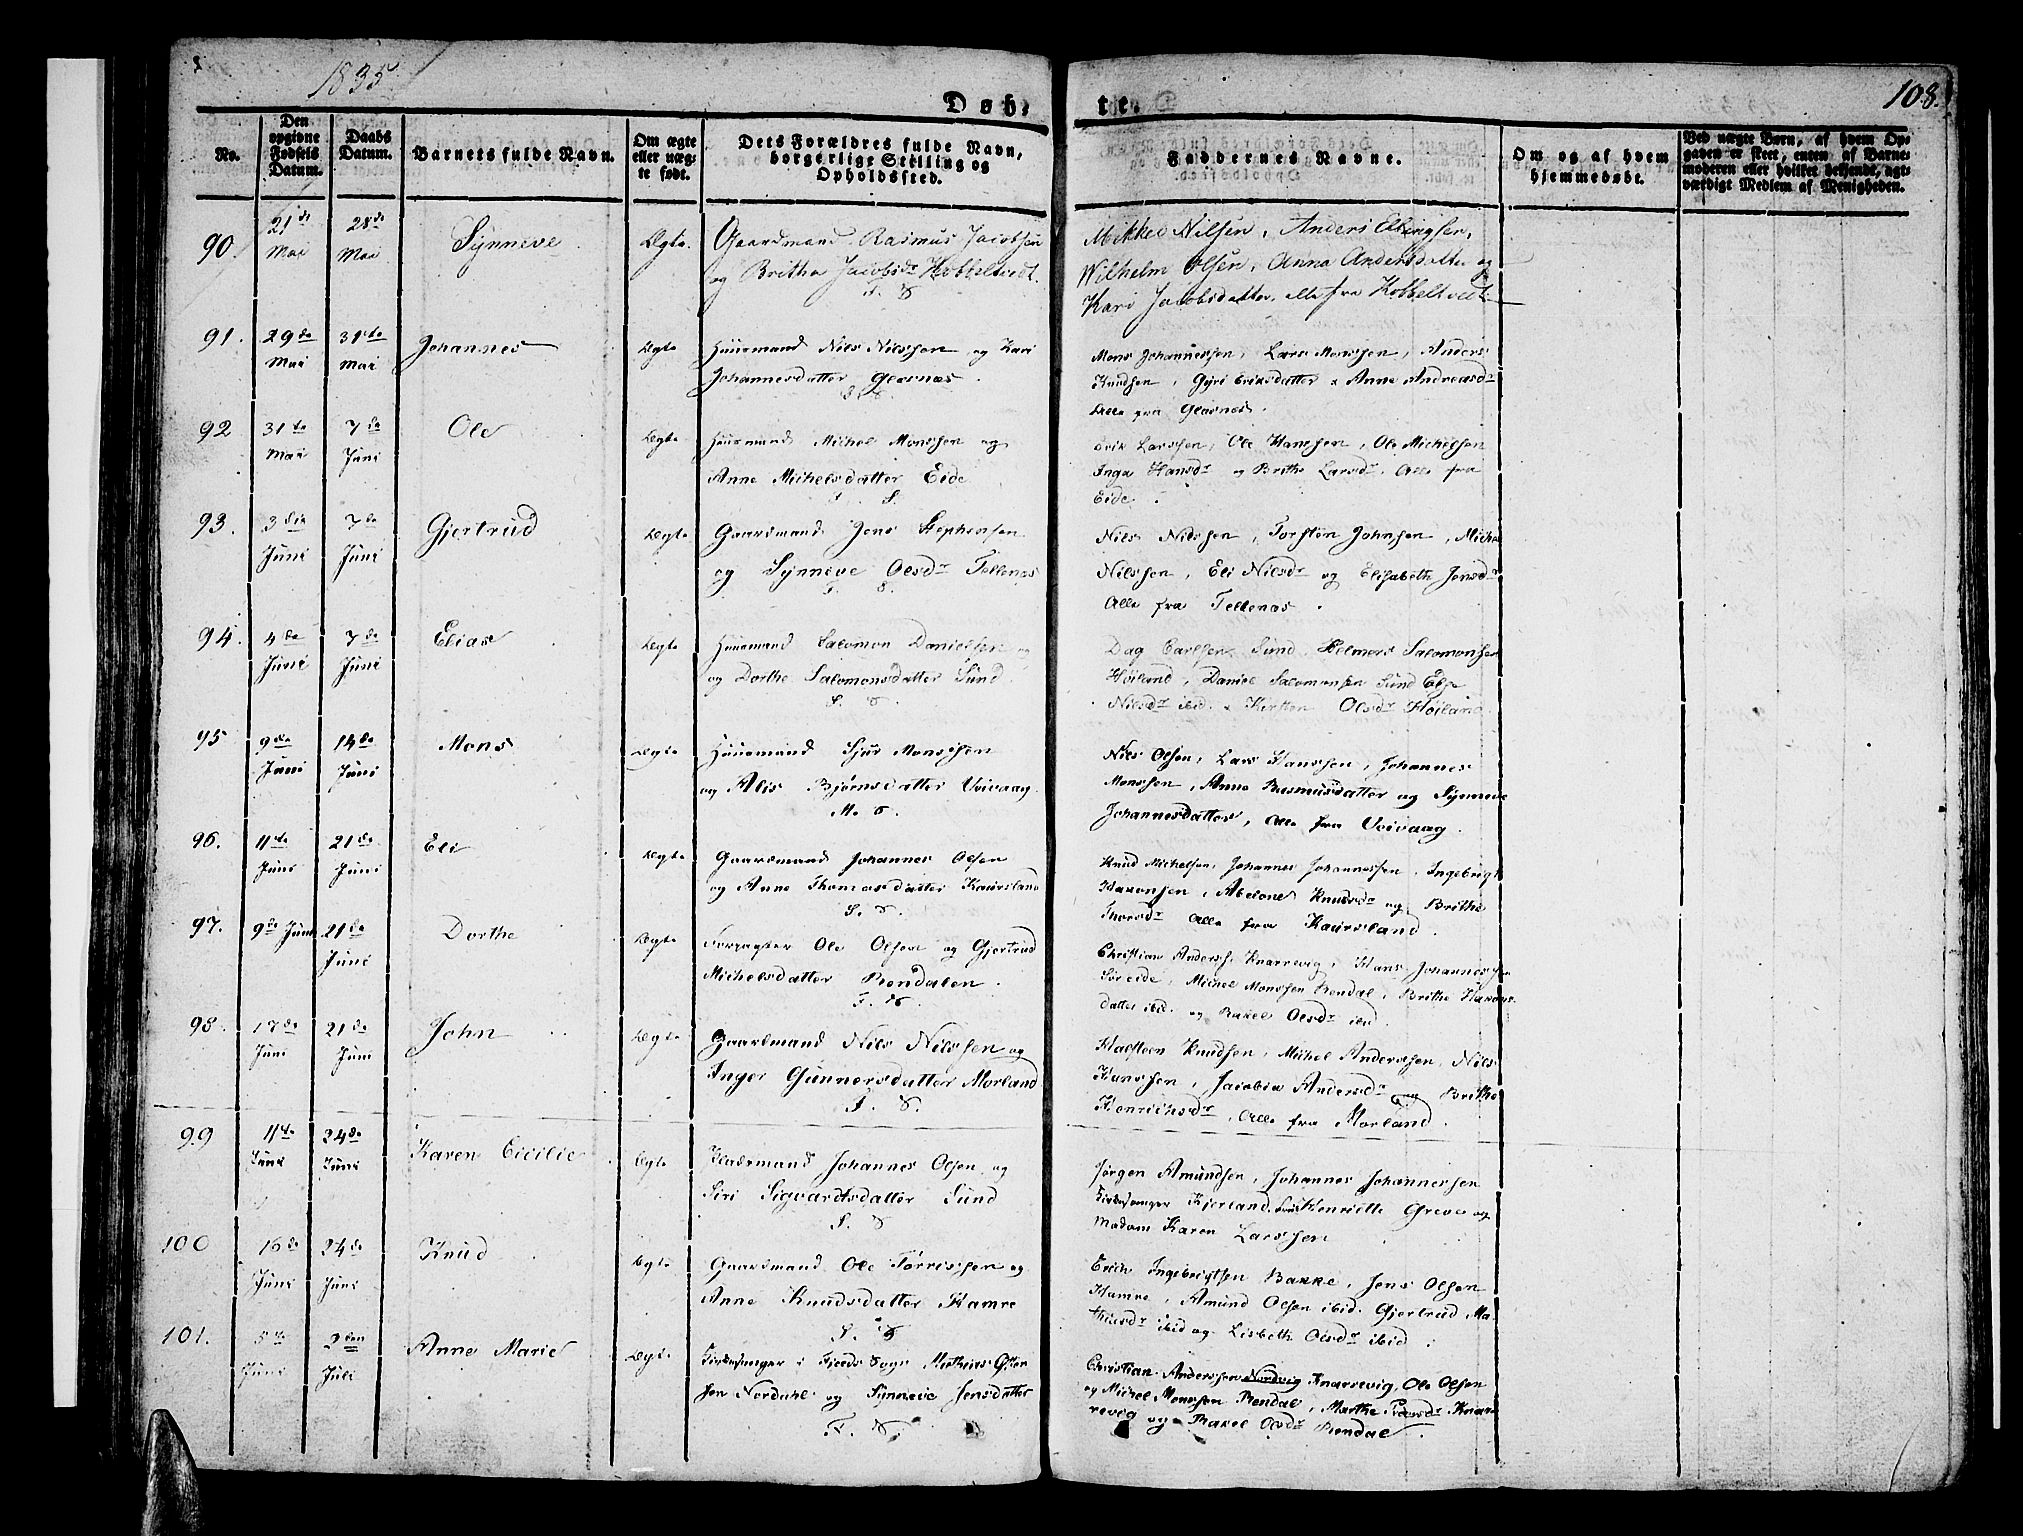 1835
108.
Døb-
te.
No.
Den opgivne Fødsels Datum.
Daabs Datum.
Barnets fulde Navn.
Om ægte eller uægte født.
Dets Forældres fulde Navn, borgerlige Stilling og Opholdssted.
Faddernes Navne.
Om og af hvem hjemmedøbt.
Ved uægte Børn, af hvem Opgaven er skeet, enten af Barnemoderen eller hvilket bekjendt, agtværdigt Medlem af Menigheden.
90.
21de Mai
28de Mai
Synneve
Ægte.
Gaardmand Rasmus Jacobsen
og Britha Jacobsdr Kobbeltvedt.
F. S
Mikkel Nilsen, Anders Ellingsen,
Wilhelm Olsen, Anna Andersdatter og
Kari Jacobsdatter, alle fra Kobbeltvedt
91.
29de Mai
31te Mai
Johannes
Ægte
Huusmand Nils Nilssen og Kari
Johannesdatter Glesnæs.
S. S.
Mons Johannessen, Lars Monssen, Anders
Knudsen, Gyri Eriksdatter & Anne Andreasdr
Alle fra Glesnæs.
92
31te Mai
7de Juni
Ole
Ægte
Huusmand Michel Monssen og
Anne Michelsdatter Eide
S.
Erik Larssen, Ole Hanssen, Ole Michelsen
Inga Hansdr og Brithe Larsdr. Alle fra
Eide.
93.
3die Juni
7de Juni
Gjertrud
Ægte
Gaardmand Jens Stephensen
og Synneve Olsdr Tellenæs
F. S.
Nils Nilssen, Torsten Johnsen, Michel
Nilssen, Eli Nilsdr og Elisabeth Jensdr
Alle fra Tellenæs.
94.
4de Juni
7de Juni
Elias
Ægte
Huusmand Salomon Danielssen
og Dorthe Salomonsdatter Sund.
S. S.
Dag Carlsen Sund, Helmers Salomonsen
Høiland, Daniel Salomonsen Sund Else
Nilsdr ibid. & Kirsten Olsdr Høiland
95
9de Juni
14de Juni
Mons
Ægte
Huusmand Sjur Monssen
og Alis Bjørnsdatter Veivaag
M. S.
Nils Olsen, Lars Hanssen, Johannes
Monssen, Anne Rasmusdatter og Synneve
Johannesdatter, Alle fra Veivaag.
96.
11te Juni
21de Juni
Eli
Ægte
Gaardmand Johannes Olsen
og Anne Thomasdatter Kaursland
S. S.
Knud Michelsen, Johannes Johannessen, Ingebrigt
Haaonsen, Abelone Knudsdr og Brithe
Thorsdr Alle fra Kaursland.
97.
9de Juni
21de Juni
Dorthe
Ægte
Forpagter Ole Olsen og Gjertrud
Michelsdatter Rendalen.
F. S.
Christian Anderss. Knarrevig, Hans Johannessen
Søreide, Michel Monssen Rendal, Brithe Haaons
datter ibid. og Rakel Olsdr ibid.
98.
17de Juni
21de Juni
John
Ægte
Gaardmand Nils Nilssen og
Inger Gunnersdatter Morland
F. S.
Halsteen Knudsen, Michel Anderssen, Nils
Hanssen, Jacobia Andersdr og Brithe
Henrichsdr, Alle fra Morland.
99
11te Juni
24de Juni
Karen Cicilie
Ægte
Johannes Olsen og
Siri Sigvardtsdatter Sund
S. S
Jørgen Amundsen, Johannes Johannessen
Kirkesanger Kjerland, Henriette Greve og
Madam Karen Larssen
100
16de Juni
24de Juni
Knud
Ægte
Gaardmand Ole Tørrissen og
Anne Knudsdatter Hamre
S. S
Erich Ingebrigtsen Bakke, Jens Olsen
Hamre, Amund Olsen ibid. Gjertrud Ma-
thiasdr ibid og Lisbeth Olsdr ibid.
101.
5te Juni
2den Juli
Anne Marie
Ægte
Kirkesanger i Fjelds Sogn Mathias Ottes
sen Nordahl og Synneve Jensdatter
F. S.
Christian Anderssen Nordvig Knarrevig, Ole Olsen
og Michel Monssen Rendal, Marthe Knar-
revig og Rakel Olsdr Rendal.